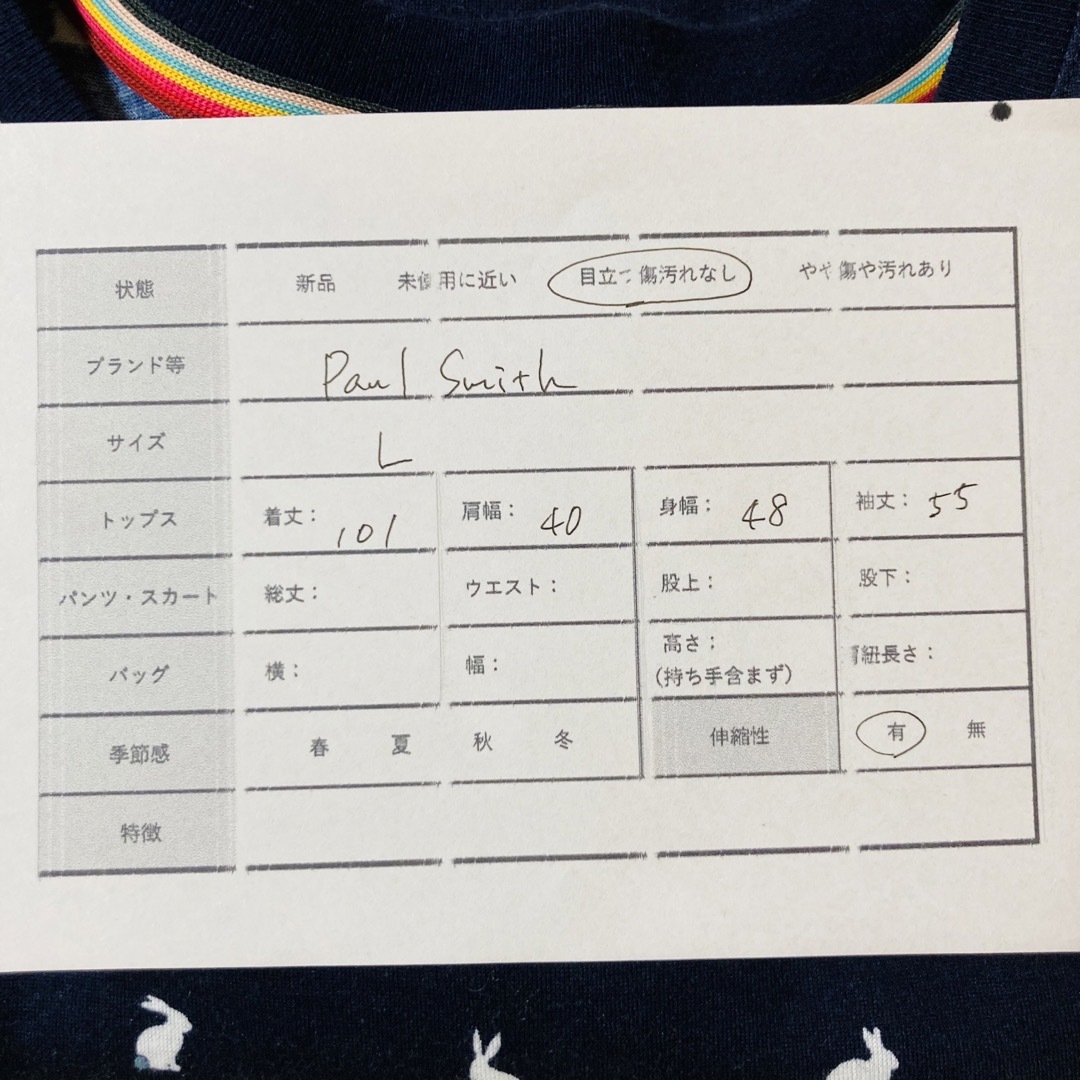 状態 新品 未使用に近い 目立つ傷汚れなし やや傷や汚れあり
ブランド等 Paul Smith
サイズ L
トップス 着丈: 101 肩幅: 40 身幅: 48 袖丈: 55
パンツ・スカート 総丈: ウエスト: 股上: 股下:
バッグ 横: 幅: 高さ: 肩紐長さ:
(持ち手含まず)
季節感 春 夏 秋 冬 伸縮性 有 無
特徴